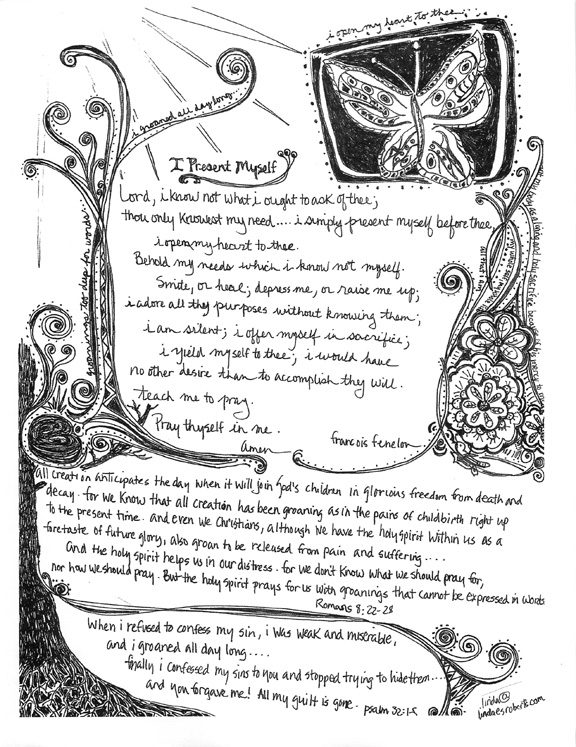 i open my heart to thee...
i groaned all day long...
groanings too deep for words
I Present Myself
Lord, i know not what i ought to ask of thee;
thou only knowest my need.... i simply present myself before thee,
i open my heart to thee.
Behold my needs which i know not myself.
Smite, or heal; depress me, or raise me up;
i adore all thy purposes without knowing them;
i am silent; i offer myself in sacrifice;
i yield myself to thee; i would have
no other desire than to accomplish thy will.
teach me to pray.
Pray thyself in me.
amen
francois fenelon
all creation anticipates the day when it will join God's children in glorious freedom from death and
decay. for we know that all creation has been groaning as in the pains of childbirth right up
to the present time. and even we Christians, although we have the holy spirit within us as a
foretaste of future glory, also groan to be released from pain and suffering....
And the holy spirit helps us in our distress. for we don't know what we should pray for,
nor how we should pray. But the holy spirit prays for us with groanings that cannot be expressed in words
Romans 8:22-28
When i refused to confess my sin, i was weak and miserable,
and i groaned all day long....
finally i confessed my sins to you and stopped trying to hide them....
and you forgave me! All my guilt is gone. psalm 32:1-5
linda
lindaesroberts.com